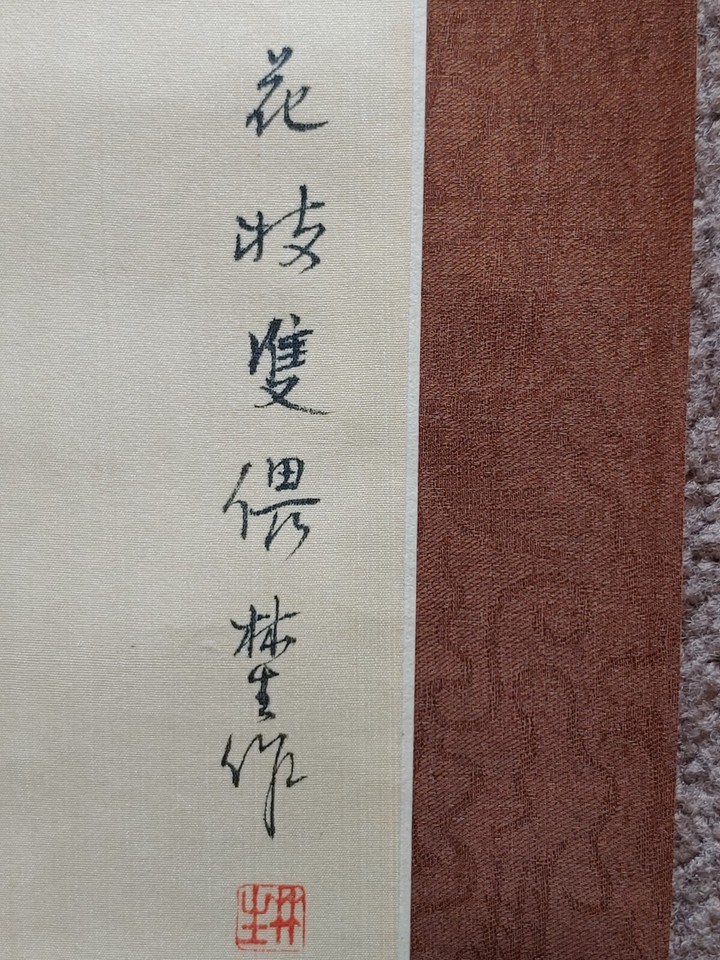 花枝雙偎林生作